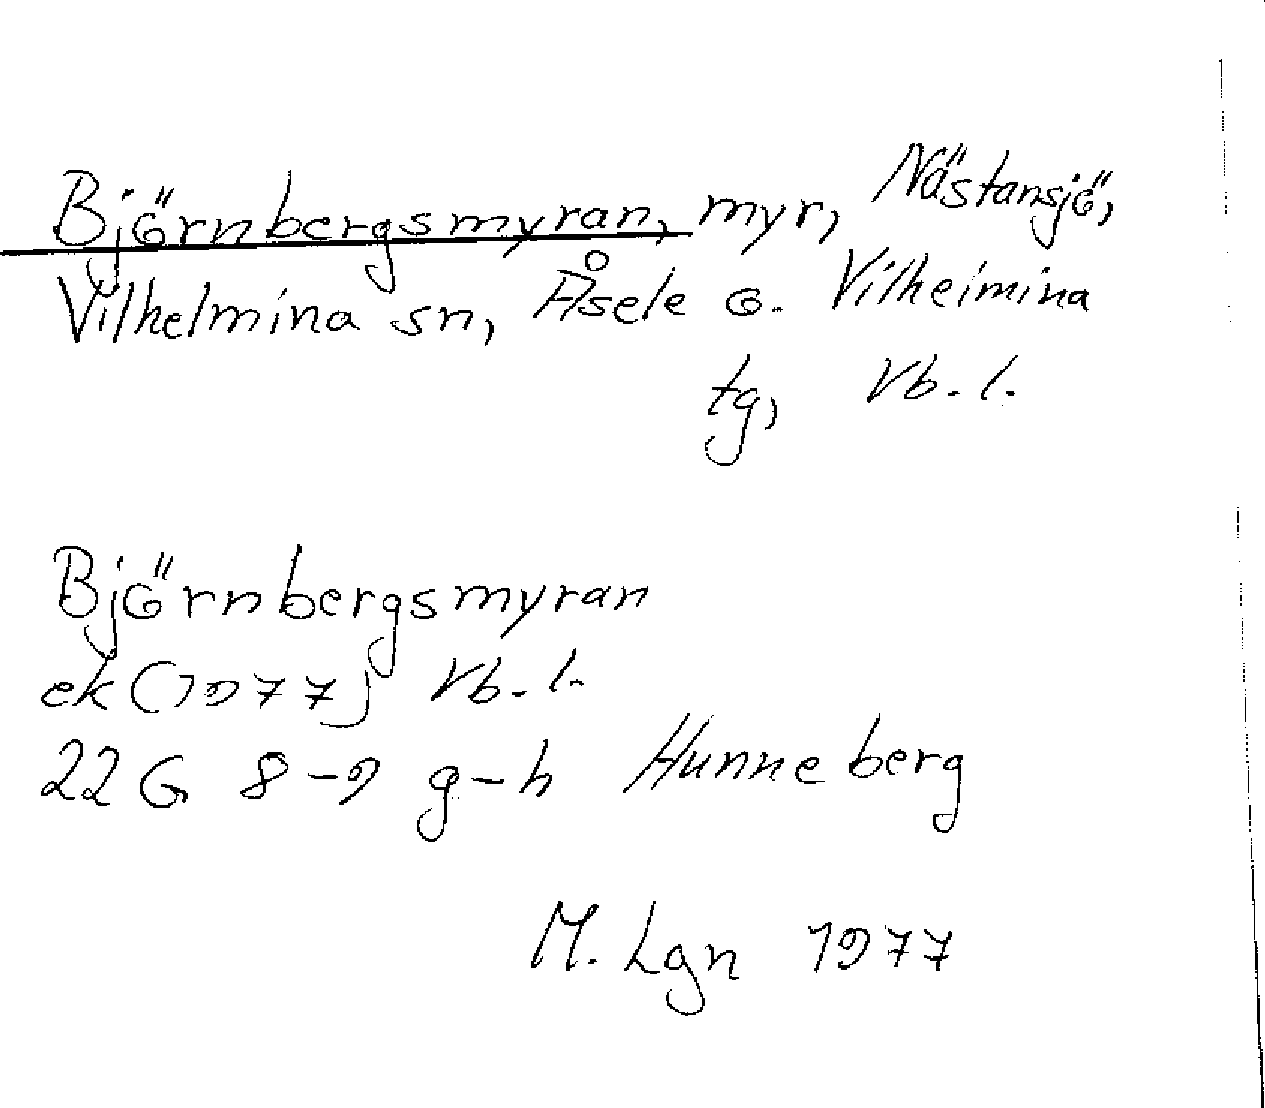 Björnbergsmyran, myr, Nästansjö,
Vilhelmina sn, Åsele o. Vilhelmina
tg, Vb. l.
Björnbergsmyran
ek (1977) Vb. l.
22G 8-9 g-h Hunneberg
M. Lgn 1977